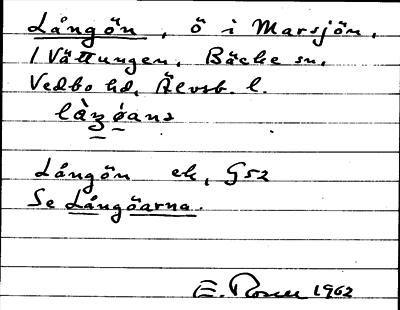 Långön, ö i Marsjön,
/ Vättungen, Bäcke sn,
Vedbo hd, Älvsb. l.
Långön ek, G52
Se Långöarna.
E. Rosen 1962